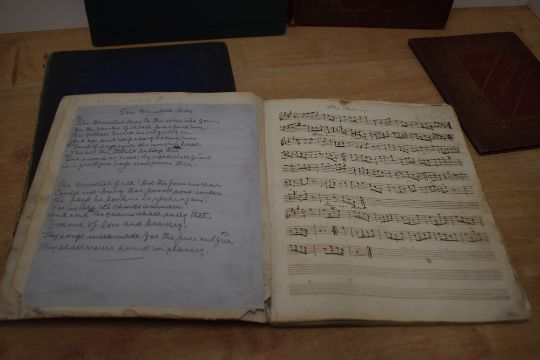 The Minstrel Boy
The Minstrel Boy to the war is gone
In the ranks of death you'll find him,
His father's sword he has girded on
And his wild harp slung behind him
Land of song said the warrior bard,
Tho' all the world betrays thee
One sword at least thy rights shall guard
One faithful harp shall praise thee.
The Minstrel fell! but the foeman's chain
Could not bring that proud soul under
The harp he loved ne'er spoke again,
For he tore its chords asunder
And said No chains shall sully thee,
Thou soul of love and bravery!
Thy songs were made for the pure and free
They shall never sound in slavery